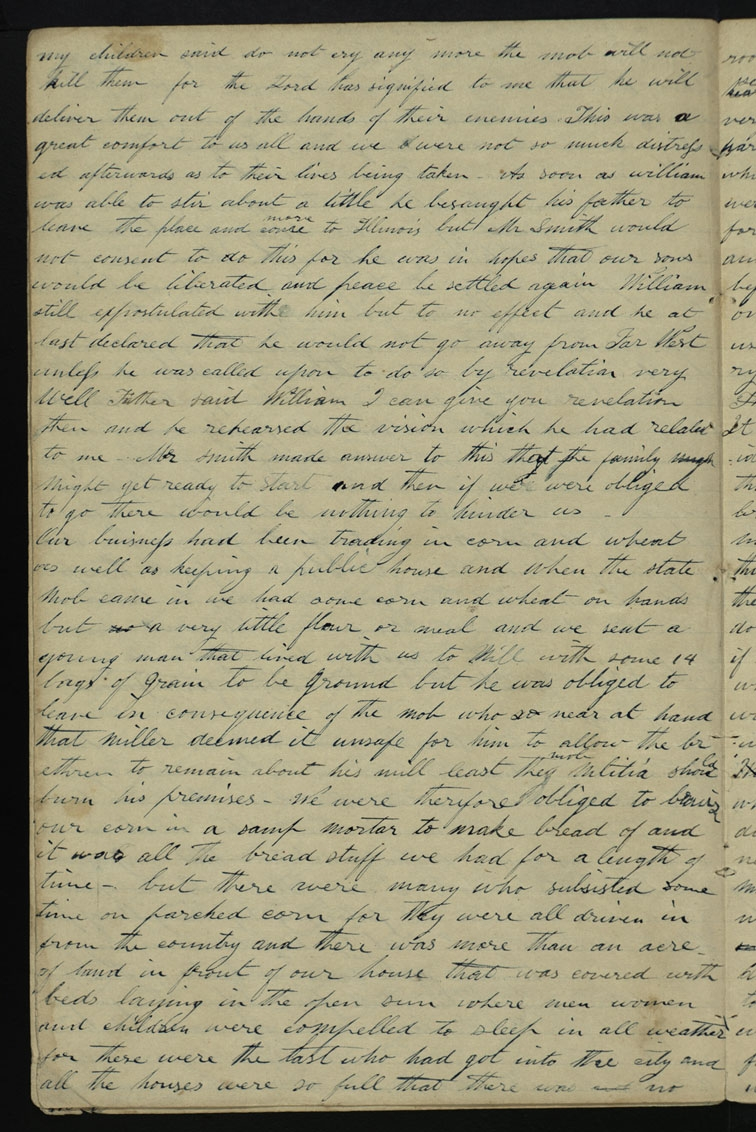 my children said do not cry any more the mob will not
kill them for the Lord has signified to me that he will
deliver them out of the hands of their enemies This was a
great comfort to us all and we were not so much distress
ed afterwards as to their lives being taken - As soon as william
was able to stir about a little he besaught his father to
leave the place and move to Illinois but Mr Smith would
not consent to do this for he was in hopes that our sons
would be liberated and peace be settled again William
still expostulated with him but to no effect and he at
last declared that he would not go away from Far West
unless he was called upon to do so by revelation very
Well Father said William I can give you revelation
then and he rehearsed the vision which he had related
to me - Mr Smith made answer to this that the family
might get ready to start and then if we were obliged
to go there would be nothing to hinder us -
Our buisness had been trading in corn and wheat
as well as keeping a public house and when the state
mob came in we had some corn and wheat on hands
but no a very little flour or meal and we sent a
young man that lived with us to Mill with some 14
bags of Grain to be ground but he was obliged to
leave in consequence of the mob who so near at hand
that miller deemed it unsafe for him to allow the br-
ethren to remain about his mill least they mob Militia should
burn his premises - We were therefore obliged to
our corn in a samp mortar to make bread of and
it was all the bread stuff we had for a length of
time - but there were many who subsisted some
time on parched corn for they were all driven in
from the country and there was more than an acre
of land in front of our house that was covered with
beds laying in the open sun where men women
and children were compelled to sleep in all weather
for these were the last who had got into the city and
all the houses were so full that there was no